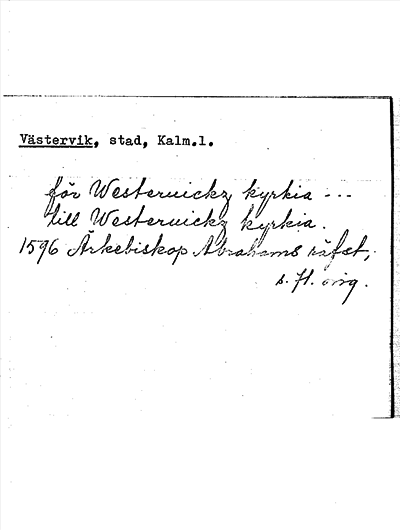 Västervik, stad, Kalm.l.
för Westeruickz kyrkia ---
till Westeruickz kyrkia.
1596 Ärkebiskop Abrahams räfst,
s. 71. orig.